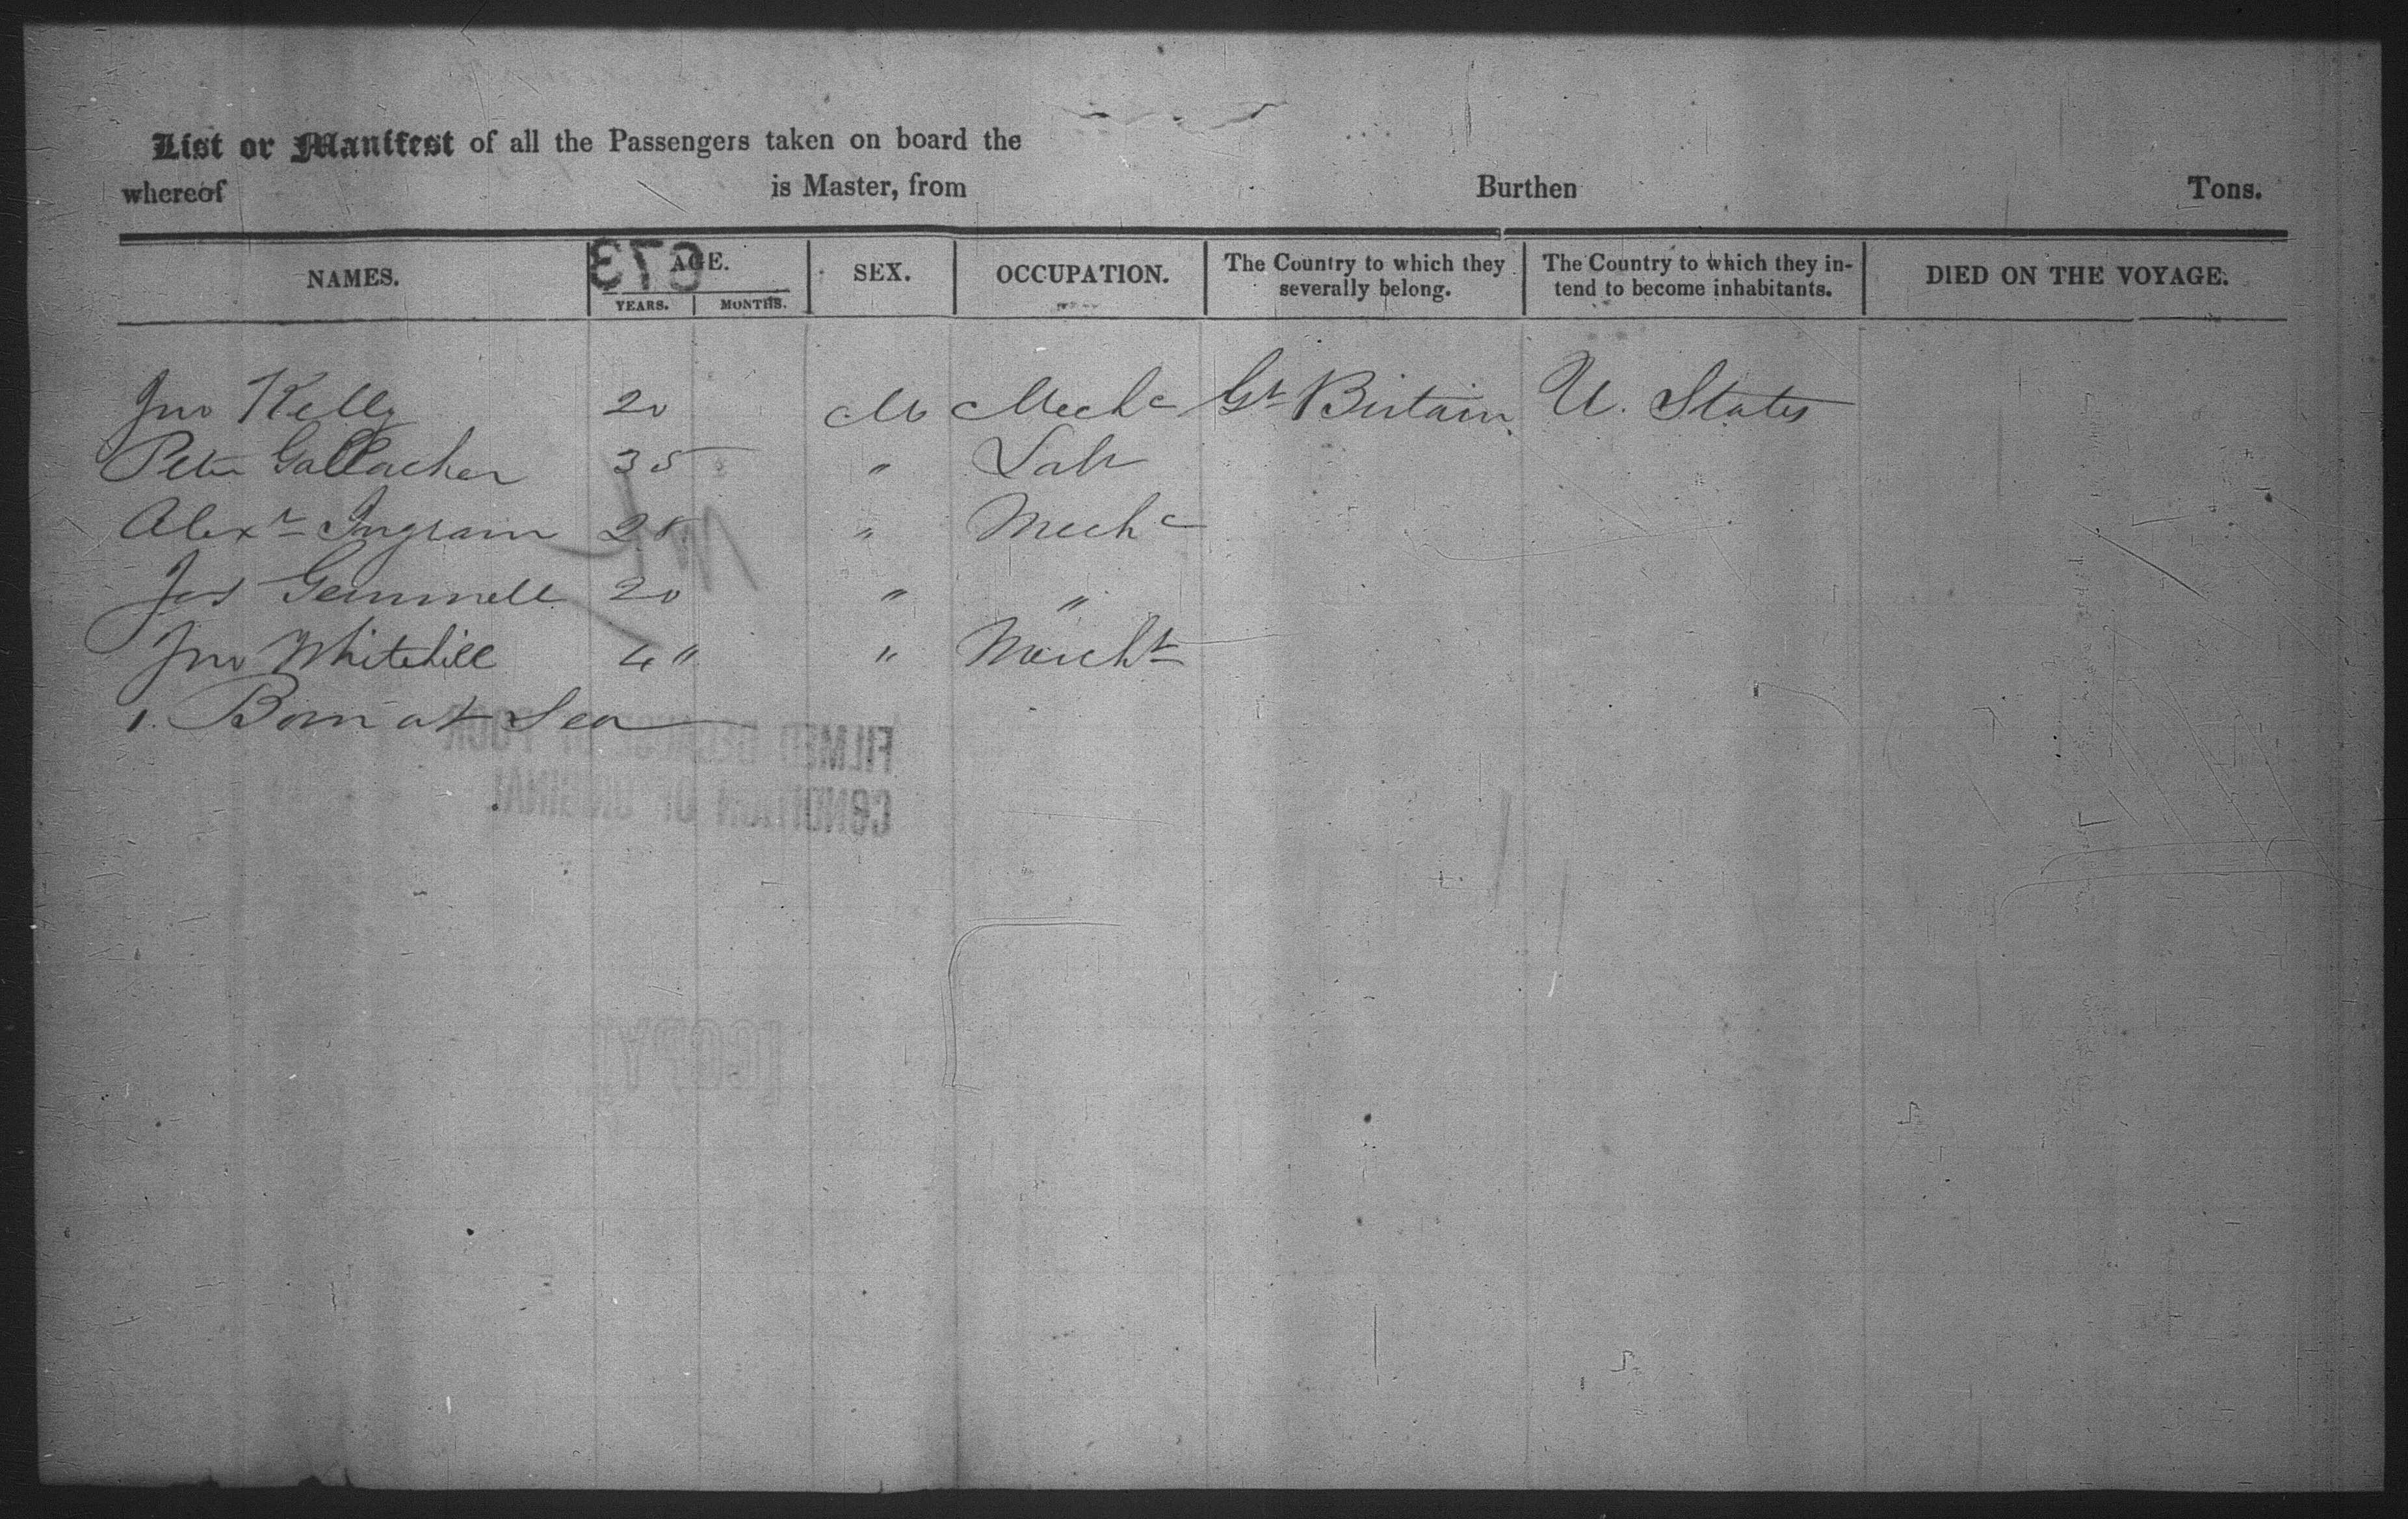 List or Manifest of all the Passengers taken on board the
whereof is Master, from Burthen Tons.
NAMES. AGE. SEX. OCCUPATION. The Country to which they severally belong. The Country to which they in-tend to become inhabitants. DIED ON THE VOYAGE.
YEARS. MONTHS.
Jno Kelly 20 M Mechc Gt Britain U. States
Peter Gallacher 35 " Labr
Alexr Ingram " Mechc
Jas Gemmell 20 " "
Jno Whitehill " Mercht
1. Born at Sea
FILMED BECAUSE OF POOR
CONDITION OF ORIGINAL
[COPY]